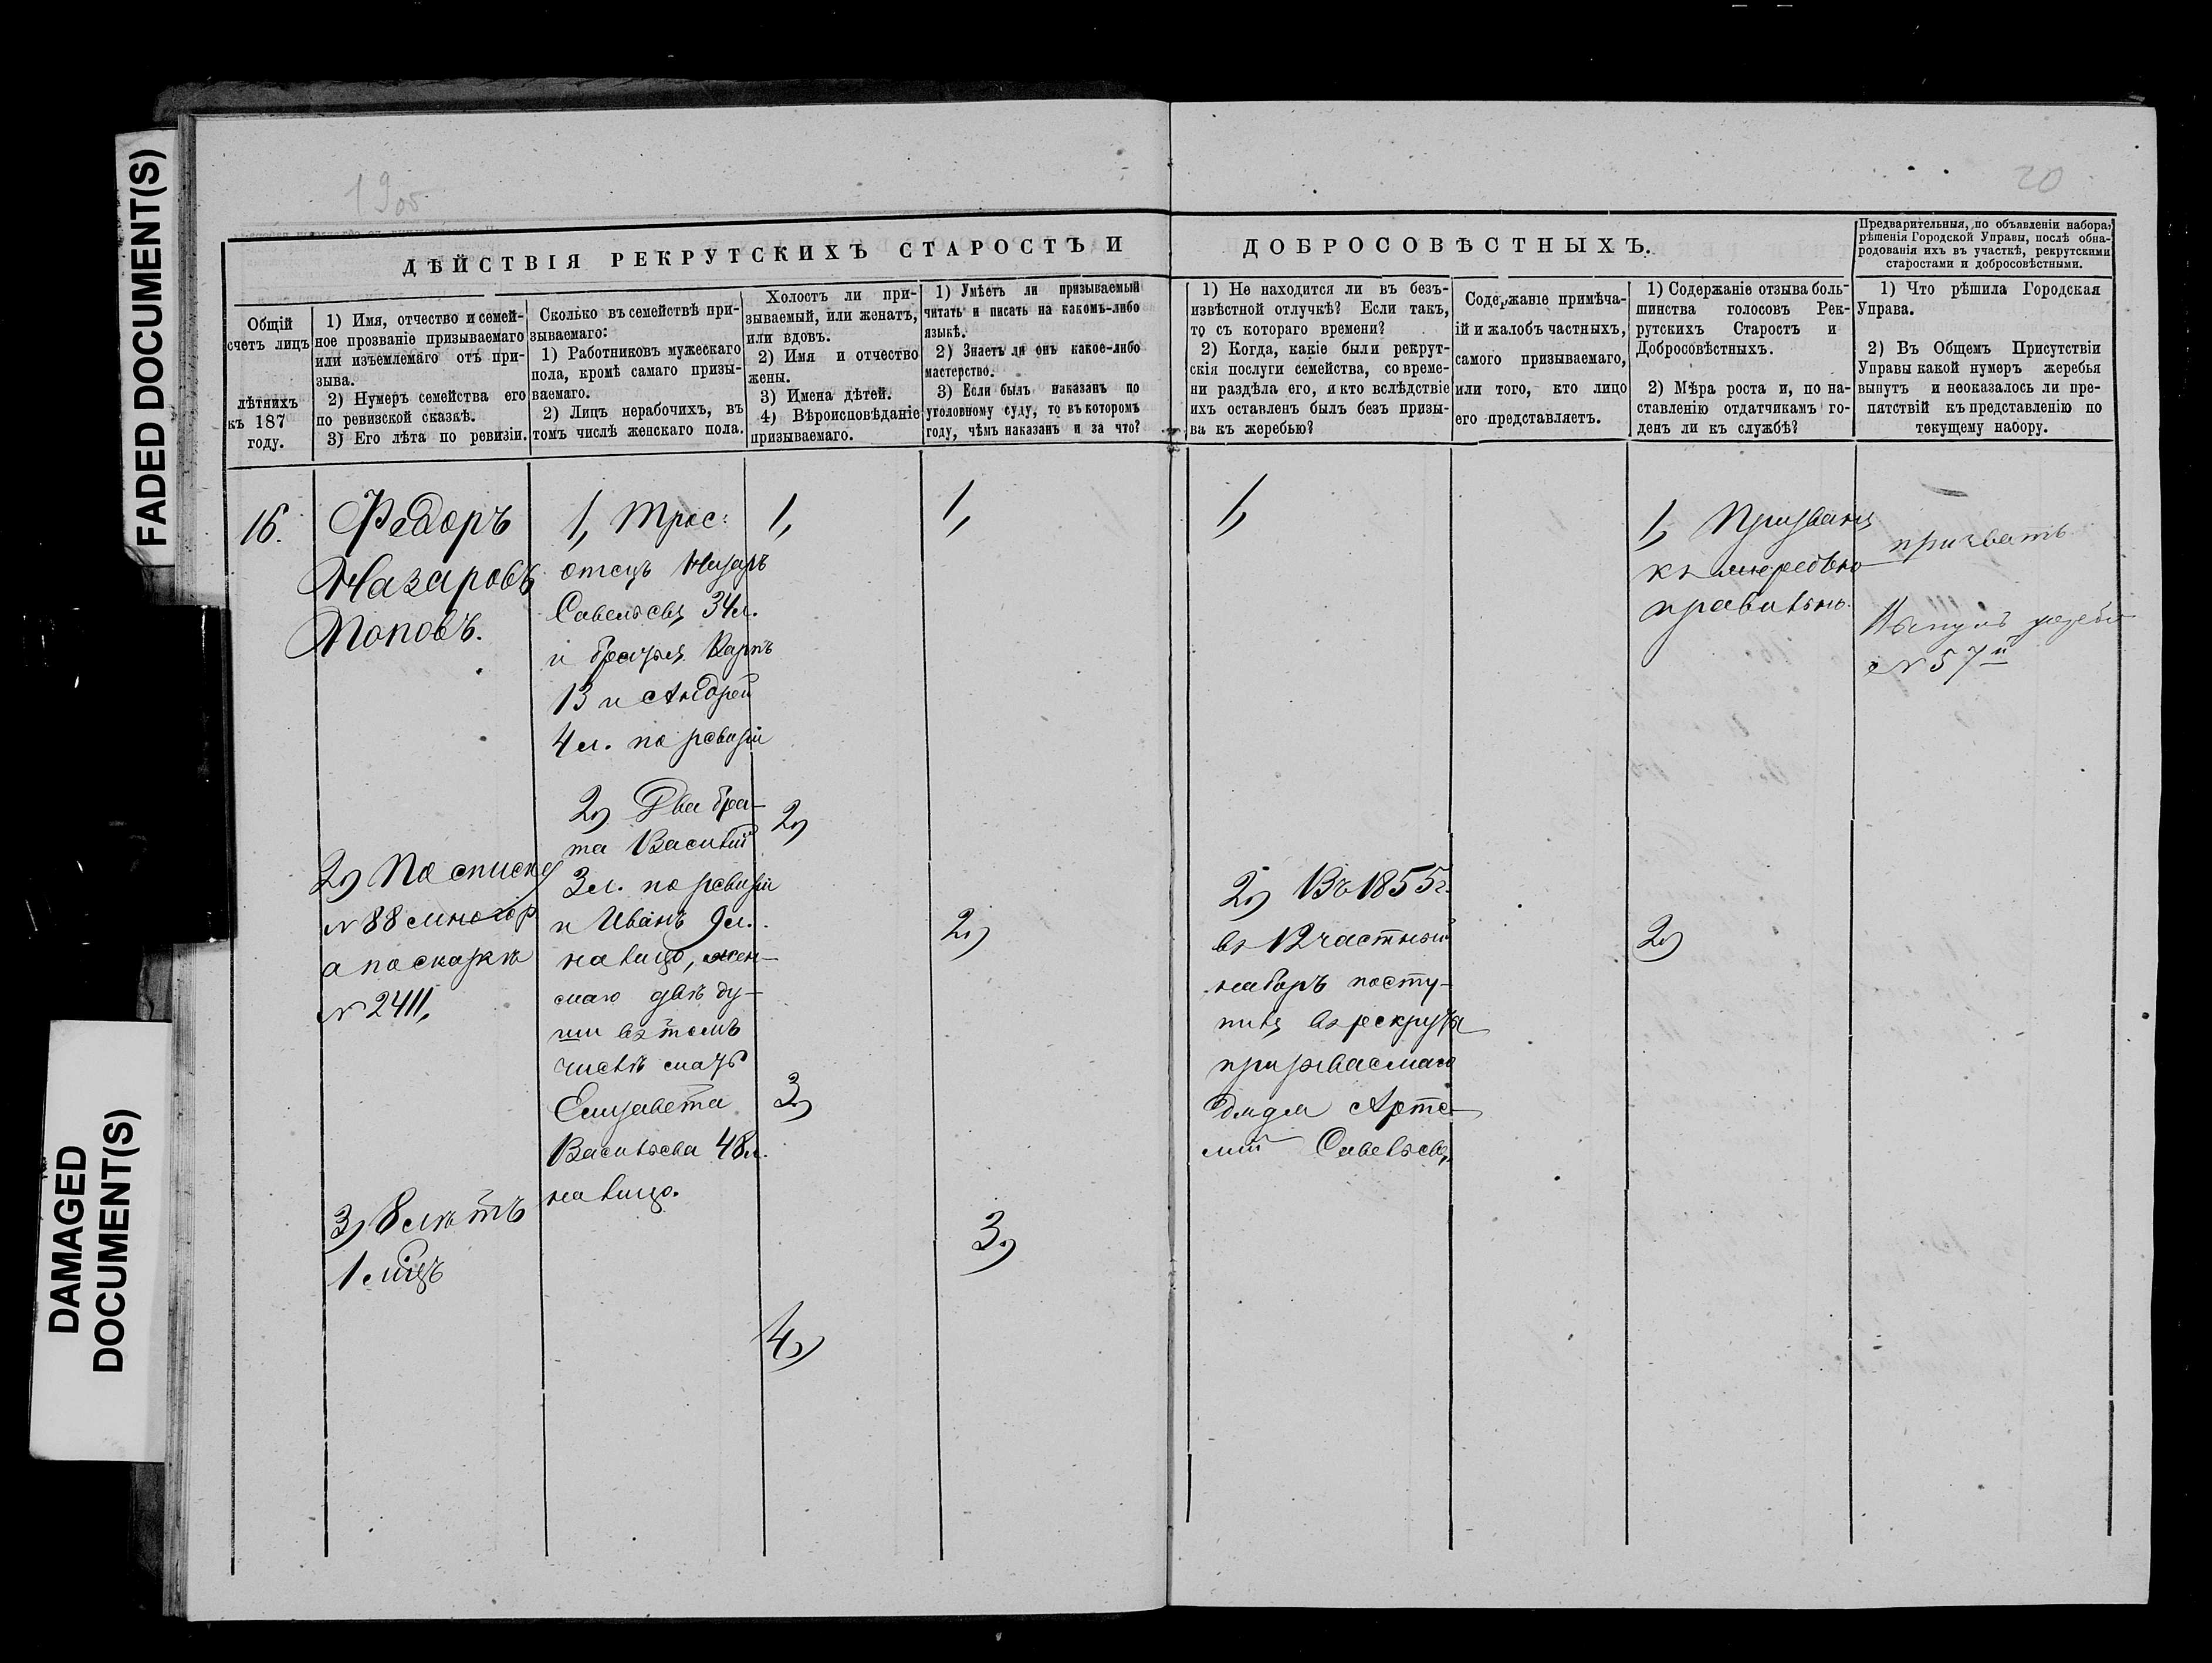 FADED DOCUMENT(S)
DAMAGED
DOCUMENT(S)
19об
20
ДѢЙСТВІЯ РЕКРУТСКИХЪ СТАРОСТЪ И
ДОБРОСОВѢСТНЫХЪ.
Предварительныя, по объявленіи набора,
рѣшенія Городской Управы, послѣ обна-
родованія ихъ въ участкѣ, рекрутскими
старостами и добросовѣстными.
Общій
счетъ лицъ
лѣтнихъ
къ 187
году.
1) Имя, отчество и семей-
ное прозваніе призываемаго
или изъемлемаго отъ при-
зыва.
2) Нумеръ семейства его
по ревизской сказкѣ.
3) Его лѣта по ревизіи.
Сколько въ семействѣ при-
зываемаго:
1) Работниковъ мужескаго
пола, кромѣ самаго призы-
ваемаго.
2) Лицъ нерабочихъ, въ
томъ числѣ женскаго пола.
Холостъ ли при-
зываемый, или женатъ,
или вдовъ.
2) Имя и отчество
жены.
3) Имена дѣтей.
4) Вѣроисповѣданіе
призываемаго.
1) Умѣетъ ли призываемый
читать и писать на какомъ-либо
языкѣ.
2) Знаетъ ли онъ какое-либо
мастерство.
3) Если былъ наказанъ по
уголовному суду, то въ которомъ
году, чѣмъ наказанъ и за что?
1) Не находится ли въ безъ-
извѣстной отлучкѣ? Если такъ,
то съ котораго времени?
2) Когда, какіе были рекрут-
скія послуги семейства, со време-
ни раздѣла его, и кто вслѣдствіе
ихъ оставленъ былъ безъ призы-
ва къ жеребью?
Содержаніе примѣча-
ій и жалобъ частныхъ,
самого призываемаго,
или того, кто лицо
его представляетъ.
1) Содержаніе отзыва боль-
шинства голосовъ Рек-
рутскихъ Старостъ и
Добросовѣстныхъ.
2) Мѣра роста и, по на-
ставленію отдатчикамъ го-
денъ ли къ службѣ?
1) Что рѣшила Городская
Управа.
2) Въ Общемъ Присутствіи
Управы какой нумеръ жеребья
вынутъ и неоказалось ли пре-
пятствій къ представленію по
текущему набору.
16.
Федоръ
Назаровъ
Поповъ.
2) По списку
№ 88
а по сказкѣ
№ 2411,
3) 8 лѣтъ
1 мѣсц
1, Трое:
отецъ Назаръ
Савельевъ 34 л.
и братья Карпъ
13 и Андрей
4 л. по ревизіи
2) Два бра-
та Василій
3 л. по ревизіи
и Иванъ 9 л.
на лицо, жен-
скаго двѣ ду-
ши въ томъ
числѣ мать
Елизавета
Васильева 48 л.
на лицо.
1,
2)
3)
4)
1,
2)
3)
1,
2) Въ 1855 г.
въ 12 частный
наборъ посту-
пилъ въ рекруты
призываемаго
дядя Арте-
мій Савельевъ,
1, Призванъ
къ жеребью
правильно.
2)
призвать
Вынулъ жребій
№ 57й